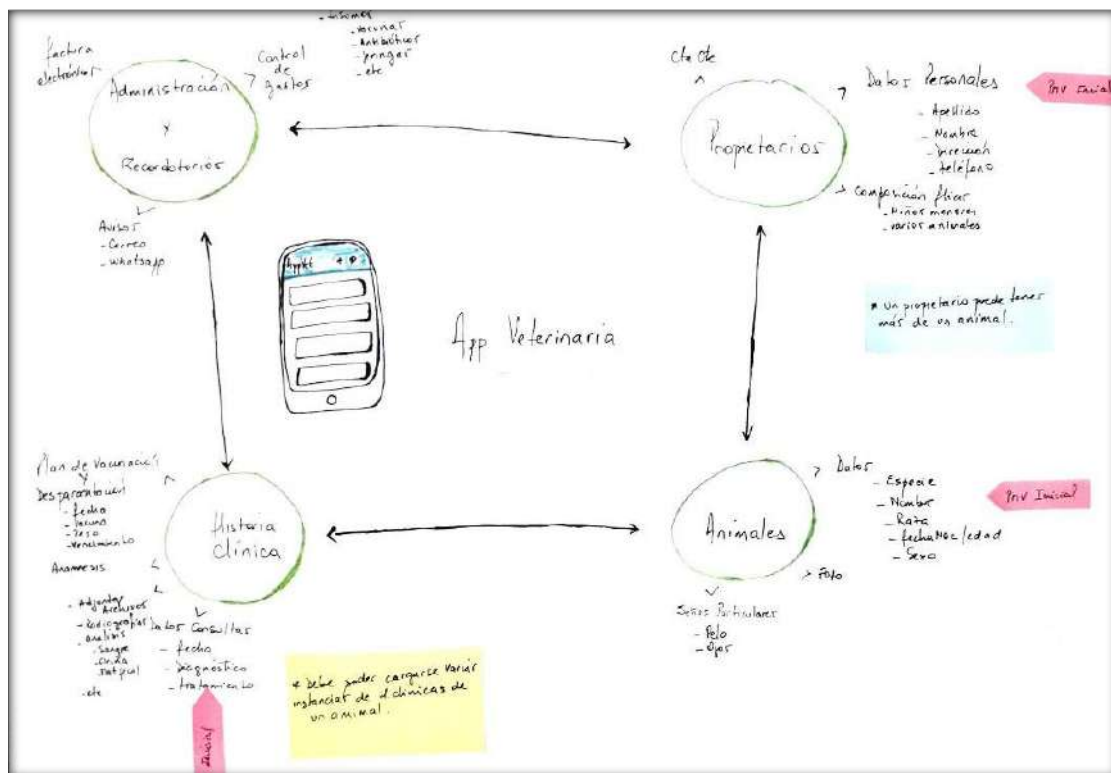 Factura
electrónica
Administración
y
Recordatorios
Control
de
gastos
- Insumos
- Vacunas
- Antibióticos
- Jeringas
- etc
Avisos
- Correo
- Whatsapp
Cta Cte
Propietarios
Datos Personales
- Apellido
- Nombre
- Dirección
- teléfono
Composición
- Niños menores
- varios animales
* Un propietario puede tener
más de un animal.
App Veterinaria
Plan de Vacunación
y
- fecha
- Vacuna
- Peso
- Vencimiento
Anamnesis
- Adjuntar
Archivos
- Radiografías
- análisis
- Sangre
- Orina
- etc
Historia
clínica
Datos Consultas
- fecha
- Diagnóstico
- tratamiento
Inicial
* Debe poder cargarse varias
instancias de H clínicas de
un animal.
Animales
Datos
- Especie
- Nombre
- Raza
- fecha Nac/edad
- Sexo
Priv Inicial
> Foto
Señas Particulares
- Pelo
- Ojos